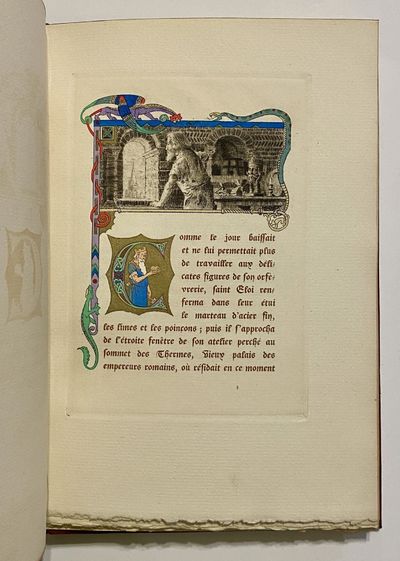 Comme le jour baissait
et ne lui permettait plus
de travailler aux déli-
cates figures de son orfè-
vrerie, saint Eloi ren-
ferma dans leur étui
le marteau d'acier fin,
les limes et les poinçons ; puis il s'approcha
de l'étroite fenêtre de son atelier perché au
sommet des Thermes, vieux palais des
empereurs romains, où résidait en ce moment